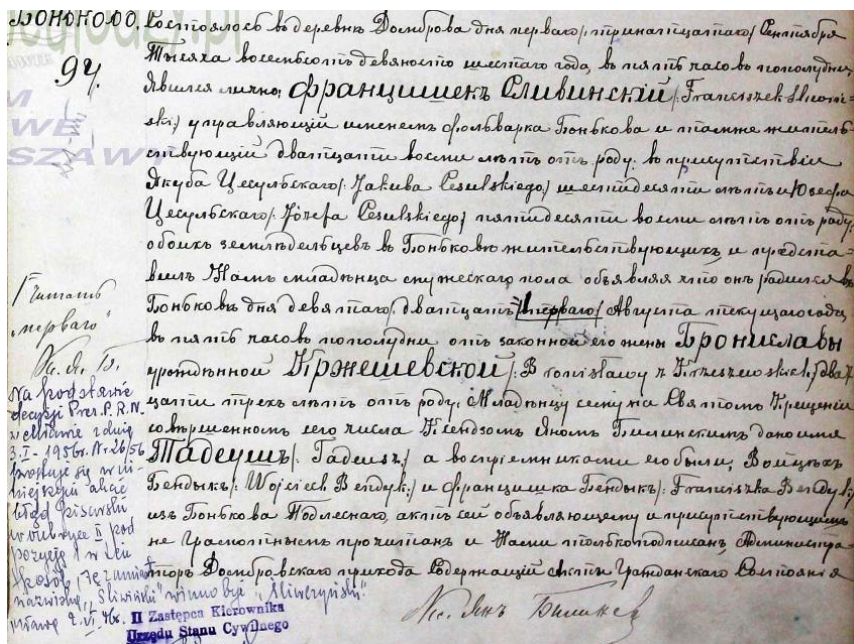 Боньково.
94.
Состоялось въ деревнѣ Домброва дня перваго /тринатцатаго/ Сентября
Тысяча восемьсотъ девяносто шестаго года, въ пять часовъ пополудни,
Явился лично, Францишекъ Сливинскій /: Franciszek Śliwiń-
ski:/ управляющій имѣнемъ фольварка Бонькова и тамже житель-
ствующій двадцати восми лѣтъ отъ роду, въ присутствіи
Якуба Цесульскаго /: Jakuba Cesulskiego:/ шестидесяти лѣтъ и Юзефа
Цесульскаго /: Józefa Cesulskiego:/ пятидесяти восми лѣтъ отъ роду,
обоихъ земледѣльцевъ въ Боньковѣ жительствующихъ, и предста-
вилъ Намъ младѣнца мужескаго пола объявляя что онъ родился въ
Боньковѣ дня девятаго /дватцать перваго/ Августа текущаго года,
въ пять часовъ пополудни отъ законной его жены Брониславы
урожденной Кржешевской /: Bronisławy z Krzeszewskich:/ два т-
цати трехъ лѣтъ отъ роду. Младѣнцу сему на Святомъ Крещеніи
совършенномъ сего числа Ксендзомъ Яномъ Билинскимъ дано имя
Тадеушъ /: Tadeusz:/ а воспріемниками его были, Войцѣхъ
Бендыкъ /: Wojciech Bendyk:/ и Францишка Бендыкъ /: Franciszka Bendyk:/
изъ Бонькова Подлеснаго, актъ сей объявляющему и присутствующимъ
не грамотнымъ прочитанъ и Нами только подписанъ, Администра-
торъ Домбровскаго прихода Содержащій Акты Гражданскаго Состоянія
Кс. Янъ Билинск
Читать
"перваго"
Кс. Я. Б.
Na podstawie
decyzji Prez. P.R.N.
w z dnia
3.I-1956r. Nr 26/56
prostuje się w ni-
niejszym akcie
błąd pisarski
w rubryce II pod
pozycją 1 w ten
sposób, że zamiast
nazwiska "Śliwiński" winno być "Śliwczyński".
II Zastępca Kierownika
Urzędu Stanu Cywilnego